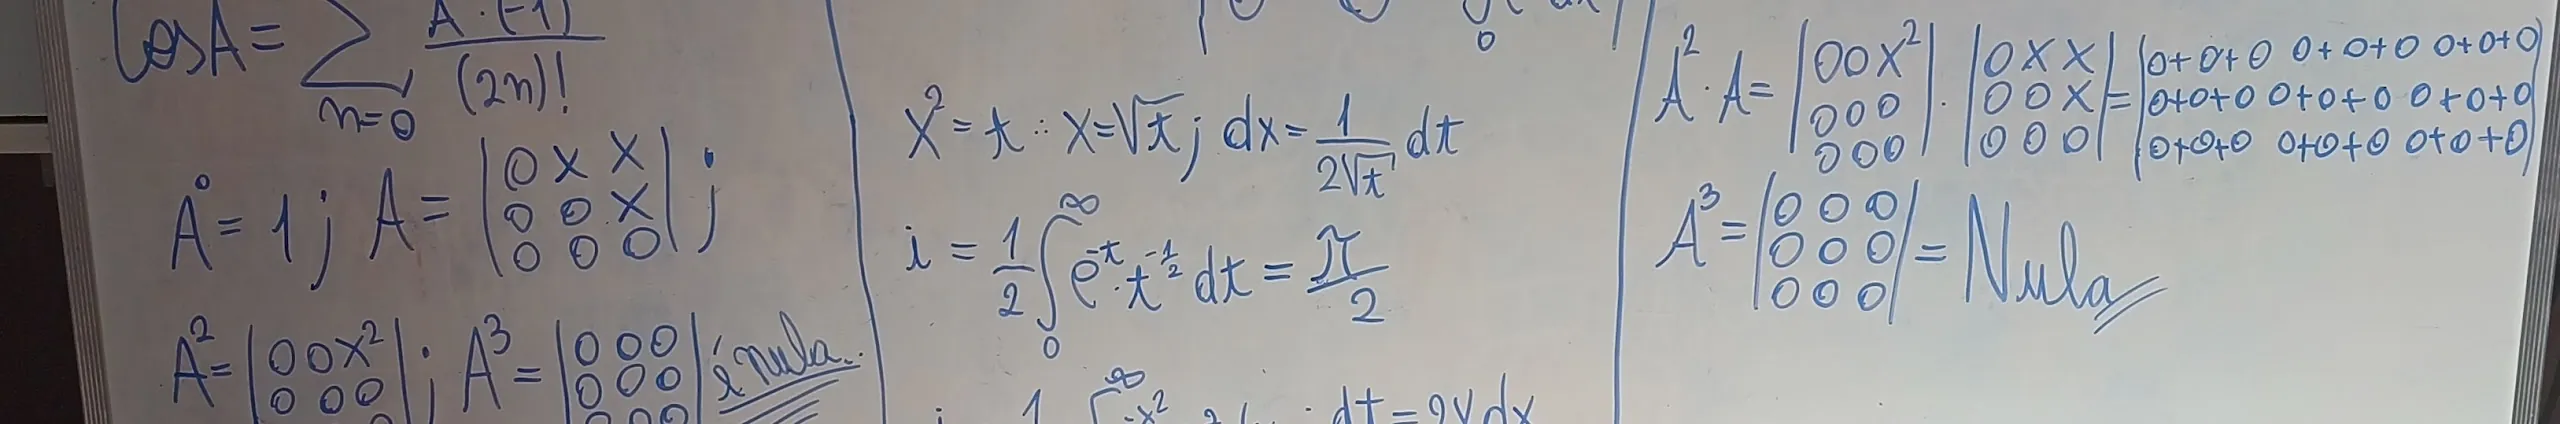 Cos A = ∑ n=0 A · (-1) / (2n)!
A⁰ = 1 ; A = |0 X X| ;
|0 0 X|
|0 0 0|
A² = |0 0 X²| ; A³ = |0 0 0| é nula..
|0 0 0| |0 0 0|
X² = t ∴ X = √t ; dx = 1/(2√t) dt
i = 1/2 ∫₀^∞ e^-t · t^-1/2 dt = π/2
dt = 2X dx
A² · A = |0 0 X²| · |0 X X| = |0+0+0 0+0+0 0+0+0|
|0 0 0| |0 0 X| |0+0+0 0+0+0 0+0+0|
|0 0 0| |0 0 0| |0+0+0 0+0+0 0+0+0|
A³ = |0 0 0| = Nula
|0 0 0|
|0 0 0|